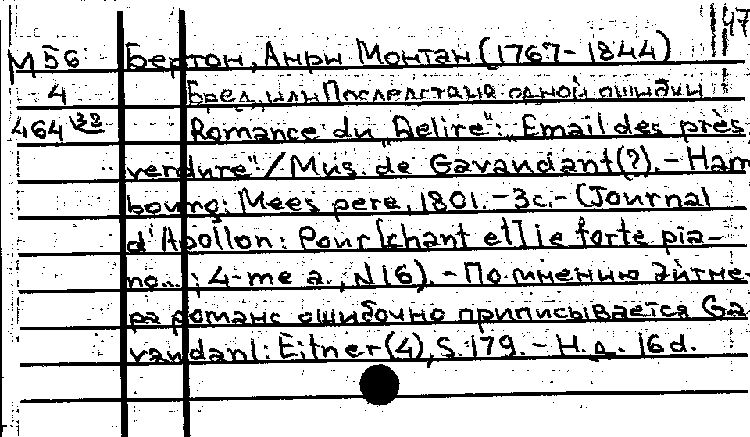 47
М 56 Бертон, Анри Монтан (1767-1844)
4 Бред, или Последствия одной ошибки
464 38 Romance du „Delire": „Email des près
verdure"/Mus. de Gavaudant(?).-Ham
bourg: Mees pere, 1801.-3с.-(Journal
d'Apollon: Pour [chant et] le forte pia-
no...; 4-me a., N 16).-По мнению Эйтне-
ра романс ошибочно приписывается Ga-
vaudanl: Eitner(4), S.179.-Н.д. 16d.